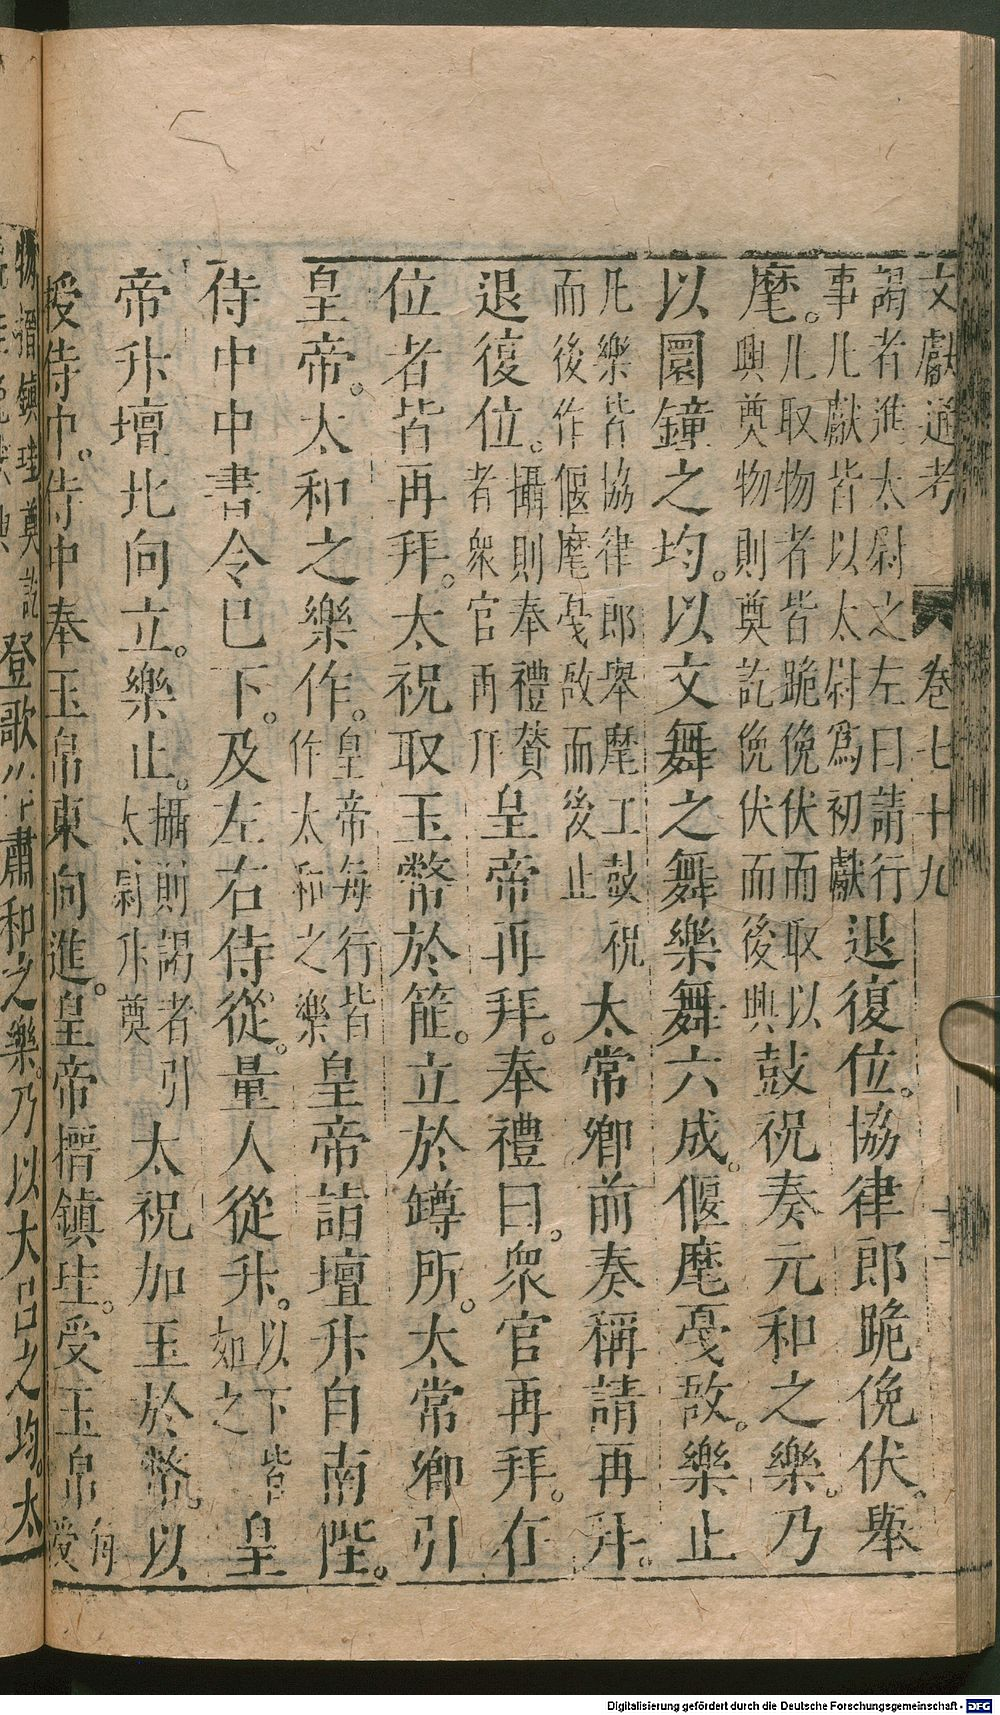 文獻通考 卷七十九 十二
謁者進太尉之左曰請行
事凡獻皆以太尉爲初獻
退復位。協律郎跪俛伏。舉
麾。
凡取物者皆跪俛伏而取以
興奠物則奠訖俛伏而後興
鼓祝奏元和之樂。乃
以圜鐘之均。以文舞之舞樂舞六成。偃麾戞敔。樂止
凡樂皆協律郎舉麾工鼓祝
而後作偃麾戞敔而後止
太常卿前奏稱請再拜。
退復位。
攝則奉禮賛
者衆官再拜
皇帝再拜。奉禮曰。衆官再拜。在
位者皆再拜。太祝取玉幣於篚。立於罇所。太常卿引
皇帝。太和之樂作。
皇帝每行皆
作太和之樂
皇帝詣壇升自南陛。
侍中中書令已下。及左右侍從。量人從升。
以下皆
如之
皇
帝升壇北向立。樂止。
攝則謁者引
太尉升奠
太祝加玉於幣。以
授侍中。侍中奉玉帛東向進。皇帝搢鎮珪。受玉帛
每
受
物搢鎮珪奠訖
登歌作肅和之樂。乃以大呂之均。太
Digitalisierung gefördert durch die Deutsche Forschungsgemeinschaft - DFG